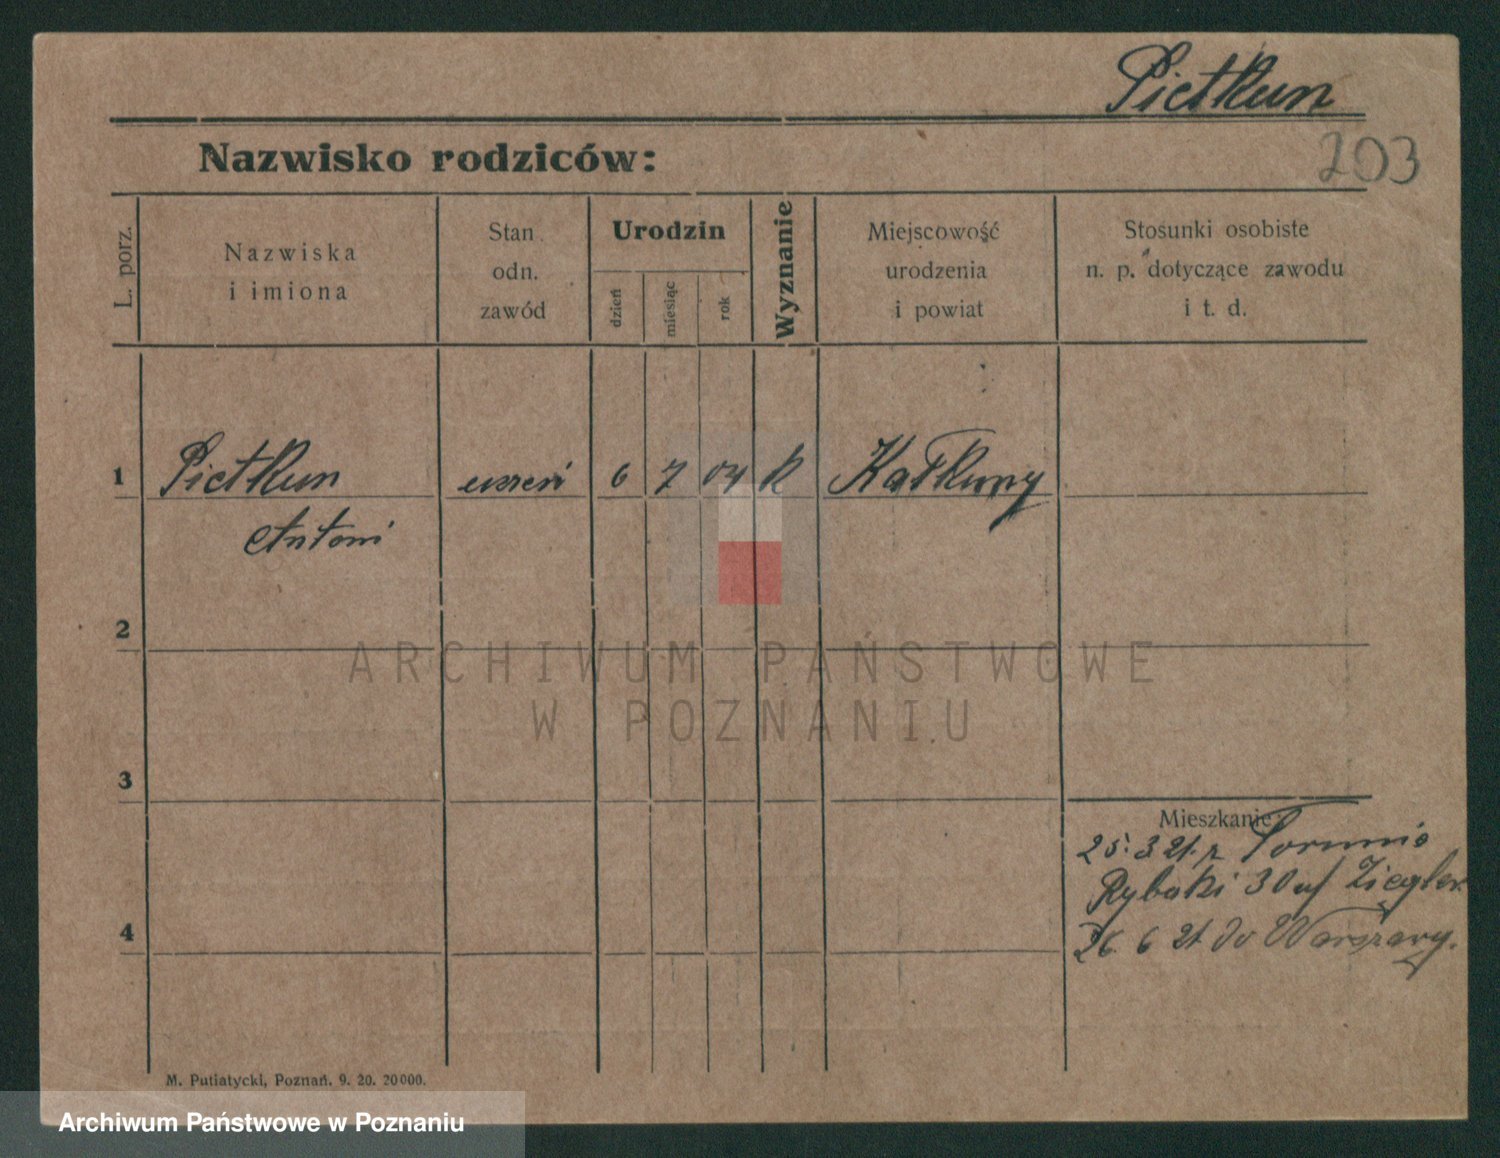 Pietkun
Nazwisko rodziców:
203
L. porz.
Nazwiska
i imiona
Stan
odn.
zawód
Urodzin
dzień
miesiąc
rok
Wyznanie
Miejscowość
urodzenia
i powiat
Stosunki osobiste
n. p. dotyczące zawodu
i t. d.
1
Pietkun uczeń 6 7 04 k Kałkuny
Antoni
2
ARCHIWUM PAŃSTWOWE
W POZNANIU
3
Mieszkanie:
25.3 21. z Torunia
Rybaki 30 u/ Ziegler.
4
26 6 21 do Warszawy.
M. Putiatycki, Poznań. 9. 20. 20000.
Archiwum Państwowe w Poznaniu